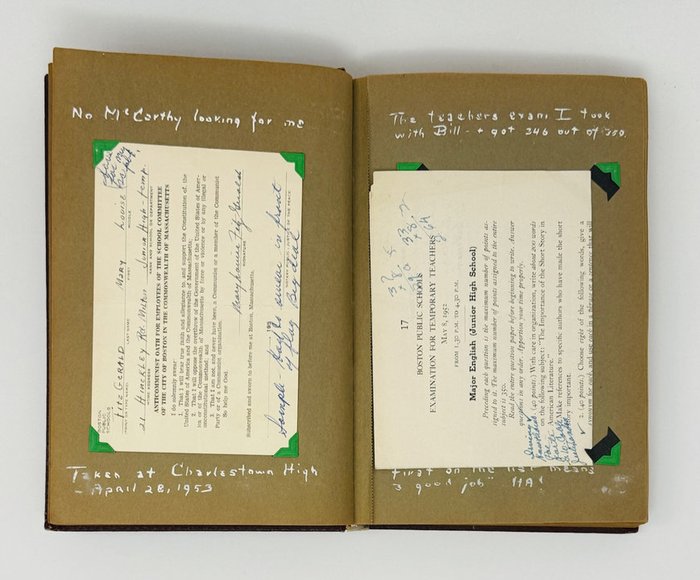 No McCarthy looking for me
BOSTON
PUBLIC
SCHOOLS
FitzGerald Mary Louise
LAST NAME FIRST MIDDLE
21 Hinckley Rd. Milton
ANTICOMMUNIST OATH FOR EMPLOYEES OF THE SCHOOL COMMITTEE
OF THE CITY OF BOSTON IN THE COMMONWEALTH OF MASSACHUSETTS
I do solemnly swear:
1. That I will bear true faith and allegiance to, and support the Constitution of, the
United States of America and the Commonwealth of Massachusetts;
2. That I will oppose the overthrow of the Government of the United States of Amer-
ica or of the Commonwealth of Massachusetts by force or violence or by any illegal or
unconstitutional method; and
3. That I am not, and never have been, a Communist or a member of the Communist
Party or of a Communist organization.
So help me God.
Mary Louise FitzGerald
SIGNATURE
Subscribed and sworn to before me at Boston, Massachusetts,
JUSTICE OF THE PEACE
Simple
swear in front
of flag
Taken at Charlestown High
- April 28, 1953
The teachers exam I took
with Bill - + got 346 out of 350.
17
BOSTON PUBLIC SCHOOLS
EXAMINATION FOR TEMPORARY TEACHERS
MAY 8, 1952
FROM 1.30 P.M. TO 4.30 P.M.
Major English (Junior High School)
Preceding each question is the maximum number of points as-
signed to it. The maximum number of points assigned to the entire
subject is 350.
Read the entire question paper before beginning to write. Answer
questions in any order. Apportion your time properly.
(40 points.) With care in organization, write about 200 words
on the following subject: "The Importance of the Short Story in
American Literature."
Make references to specific authors who have made the short
story important.
2. (40 points.) Choose eight of the following words, give a
synonym for each and use each in a phrase or a sentence that will
first on the list means
a good job" HA!